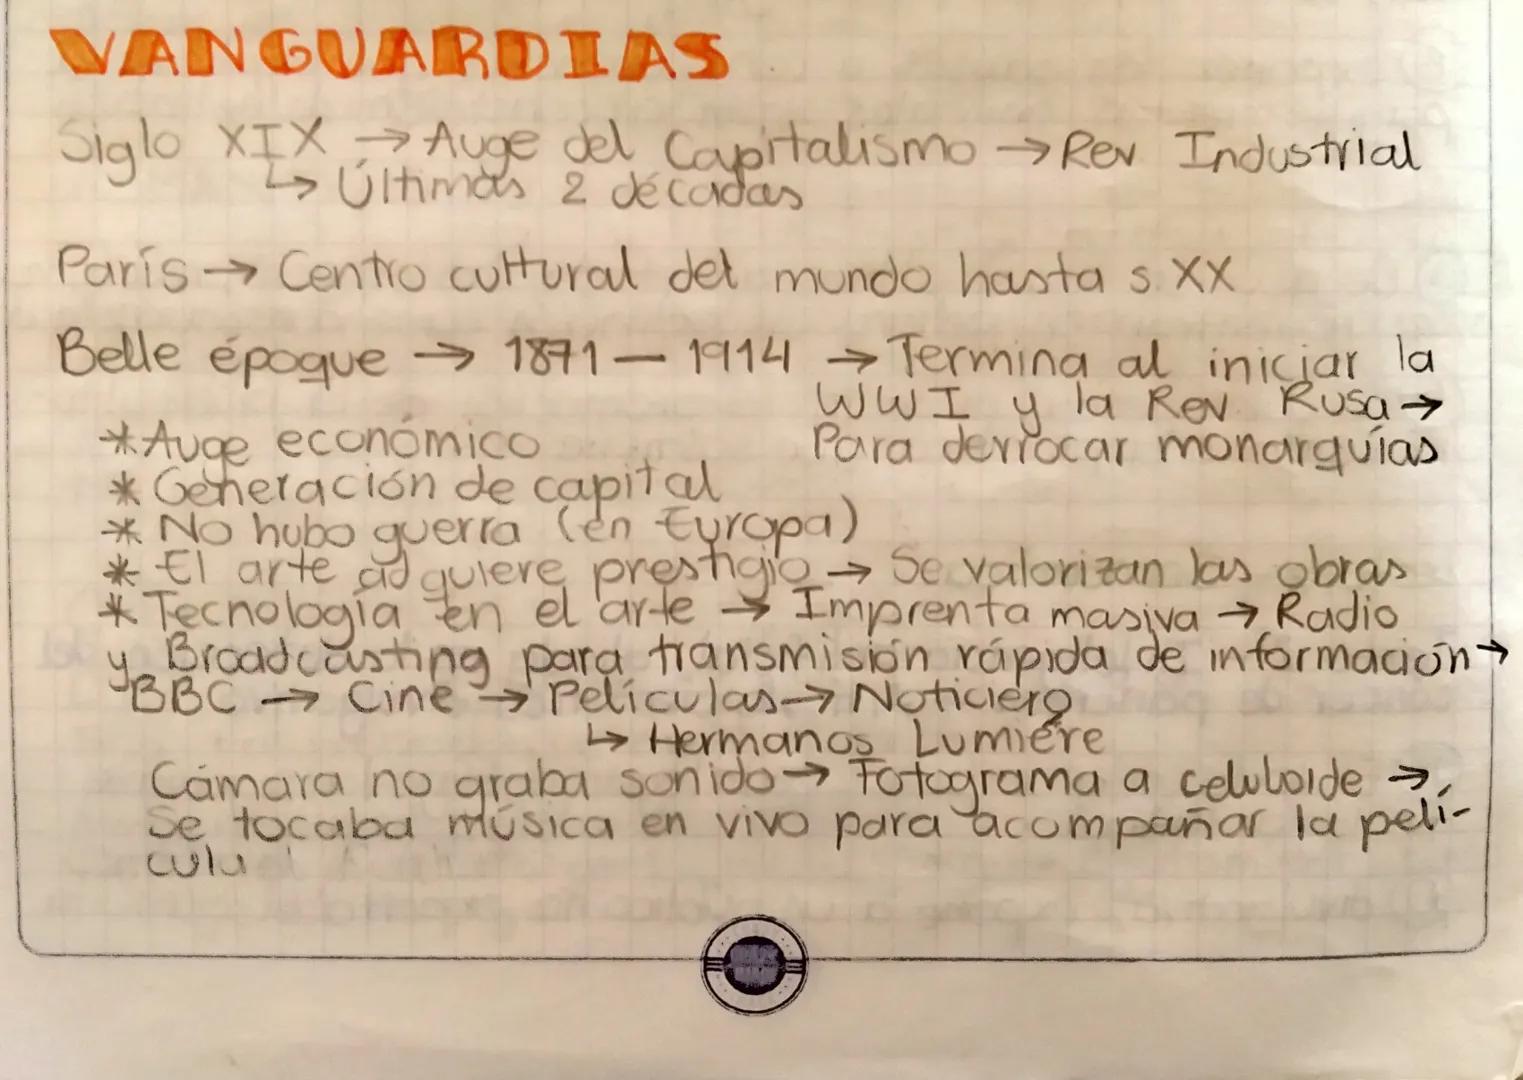 VANGUARDIAS
Siglo XIX → Auge del Capitalismo → Rev Industrial
↳ Últimas 2 décadas
París → Centro cultural del mundo hasta s. XX
Belle époque → 1871 — 1914 → Termina al iniciar la
WWI y la Rev. Rusa →
Para derrocar monarquías
* Auge económico
* Generación de capital
* No hubo guerra (en Europa)
* El arte adquiere prestigio → Se valorizan las obras
* Tecnología en el arte → Imprenta masiva → Radio
y Broadcasting para transmisión rápida de información →
BBC → Cine → Películas → Noticiero
↳ Hermanos Lumière
Cámara no graba sonido → Fotograma a celuloide →
Se tocaba música en vivo para acompañar la pelí-
cula